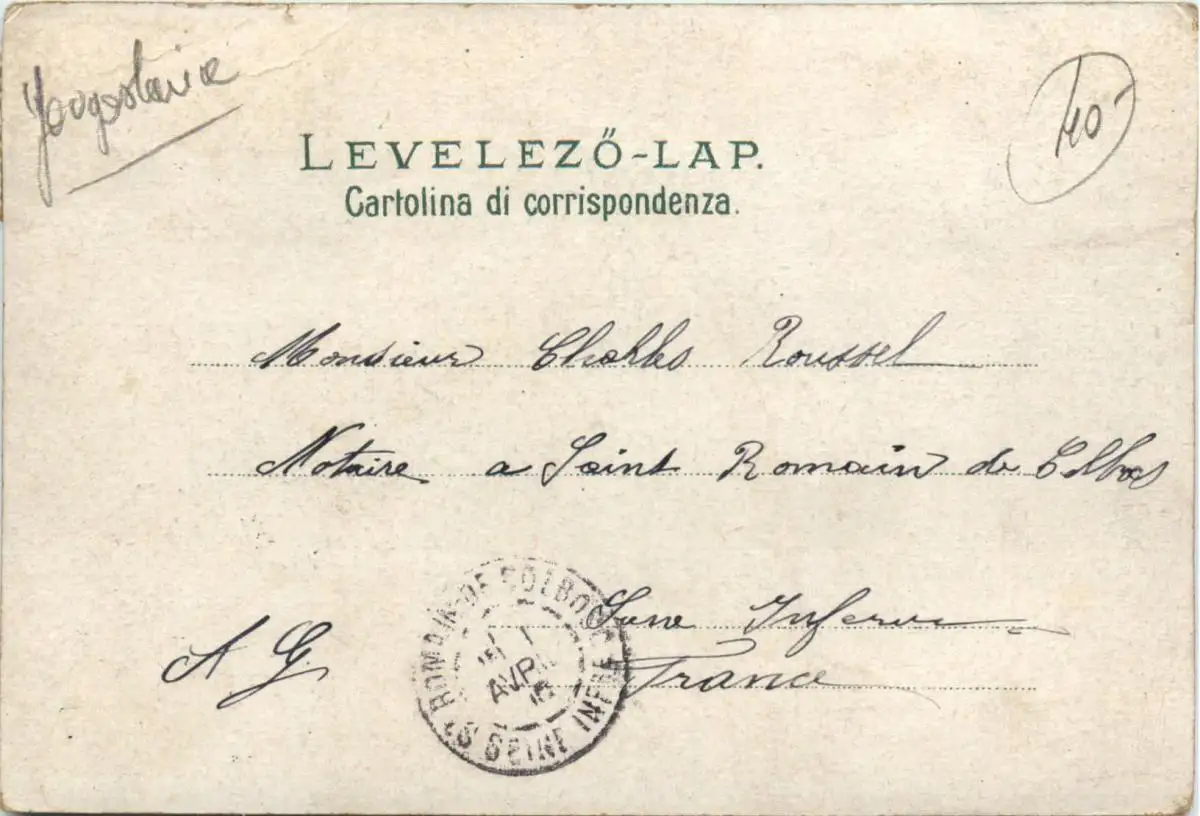 Yougoslavie
40-
LEVELEZŐ-LAP.
Cartolina di corrispondenza.
Monsieur Charles Roussel
Notaire a Saint Romain de Colbosc
Seine Inferre
France
A G.
ST ROMAIN-DE-COLBOSC
AVRIL
SEINE INFRE